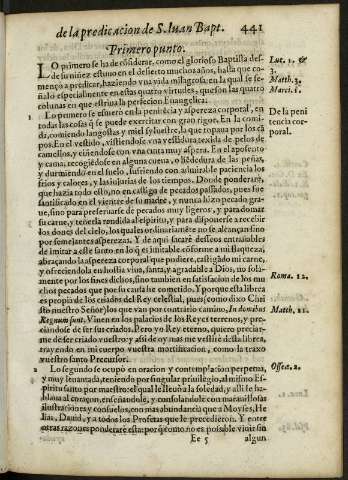 de la predicacion de S. Iuan Bapt. 441
Primero punto.
LO primero se ha de cõsiderar, como el glorioso Baptista des-
de su niñez estuuo en el desierto muchos años, hasta que co-
mençò a predicar, haziendo vna vida milagrosa: en la qual se se-
ñalò especialmente en estas quatro virtudes, que son las quatro
colunas en que estriua la perfecion Euangelica.
1 Lo primero se esmerò en la penitẽcia y aspereza corporal, en
todas las cosas q̃ se puede exercitar con gran rigor. En la comi-
da, comiendo langostas y miel syluestre, la que topaua por los cã
pos. En el vestido, vistiendose vna vestidura texida de pelos de
camellos, y ciñendose con vna cuerda muy aspera. En el aposento
y cama, recogiẽdose en alguna cueua, o hẽdedura de las peñas,
y durmiendo en el suelo, sufriendo con admirable paciencia los
frios y calores, y las injurias de los tiempos. Donde ponderarè,
que hazia todo esto, no en castigo de pecados passados, pues fue
santificado en el vientre de su madre, y nunca hizo pecado gra-
ue, sino para preseruarse de pecados muy ligeros, y para domar
su carne, y tenerla rendida al espiritu, y para disponerse a recebir
los dones del cielo, los quales ordinariamẽte no se alcançan sino
por semejantes asperezas. Y de aqui sacarè desseos entrañables
de imitar a este santo en lo q̃ es imitable cõforme a mi flaqueza,
abraçando la aspereza corporal que pudiere, castigãdo mi carne,
y ofreciendola en hostia viua, santa, y agradable a Dios, no sola-
mente por los fines dichos, sino tambien en satisfacion de los mu
chos pecados que por su causa he cometido. Y porque esta librea
es propia de los criados del Rey celestial, pues (como dixo Chri
sto nuestro Señor) los que van por contrario camino, In domibus
Regum sunt. Viuen en los palacios de los Reyes terrenos, y pre-
ciandose de ser sus criados. Pero yo Rey eterno, quiero preciar-
me de ser criado vuestro: y assi de oy mas me vestirè de sta librea,
trayendo en mi cuerpo vuestra mortificacion, como la traxo
vuestro santo Precursor.
2 Lo segundo se ocupò en oracion y contemplaciõ perpetua,
y muy leuantada, teniendo por singular priuilegio, al mismo Es-
piritu santo por maestro: el qual le lleuò a la soledad, y alli le ha-
blaua al coraçon, enseñandole, y consolandole con marauillosas
ilustraciones y consuelos, con mas abundancia que a Moyses, He
lias, Dauid, y a todos los Profetas que le precedieron. Y entre
otras razones ponderarè esta: porq̃ como no es possible viuir sin
Ee 5 algun
Luc. 1. &
3.
Matth. 3.
Marci. 1.
De la peni
tencia cor-
poral.
Roma. 12.
Matth. 11.
Oseea. 2.